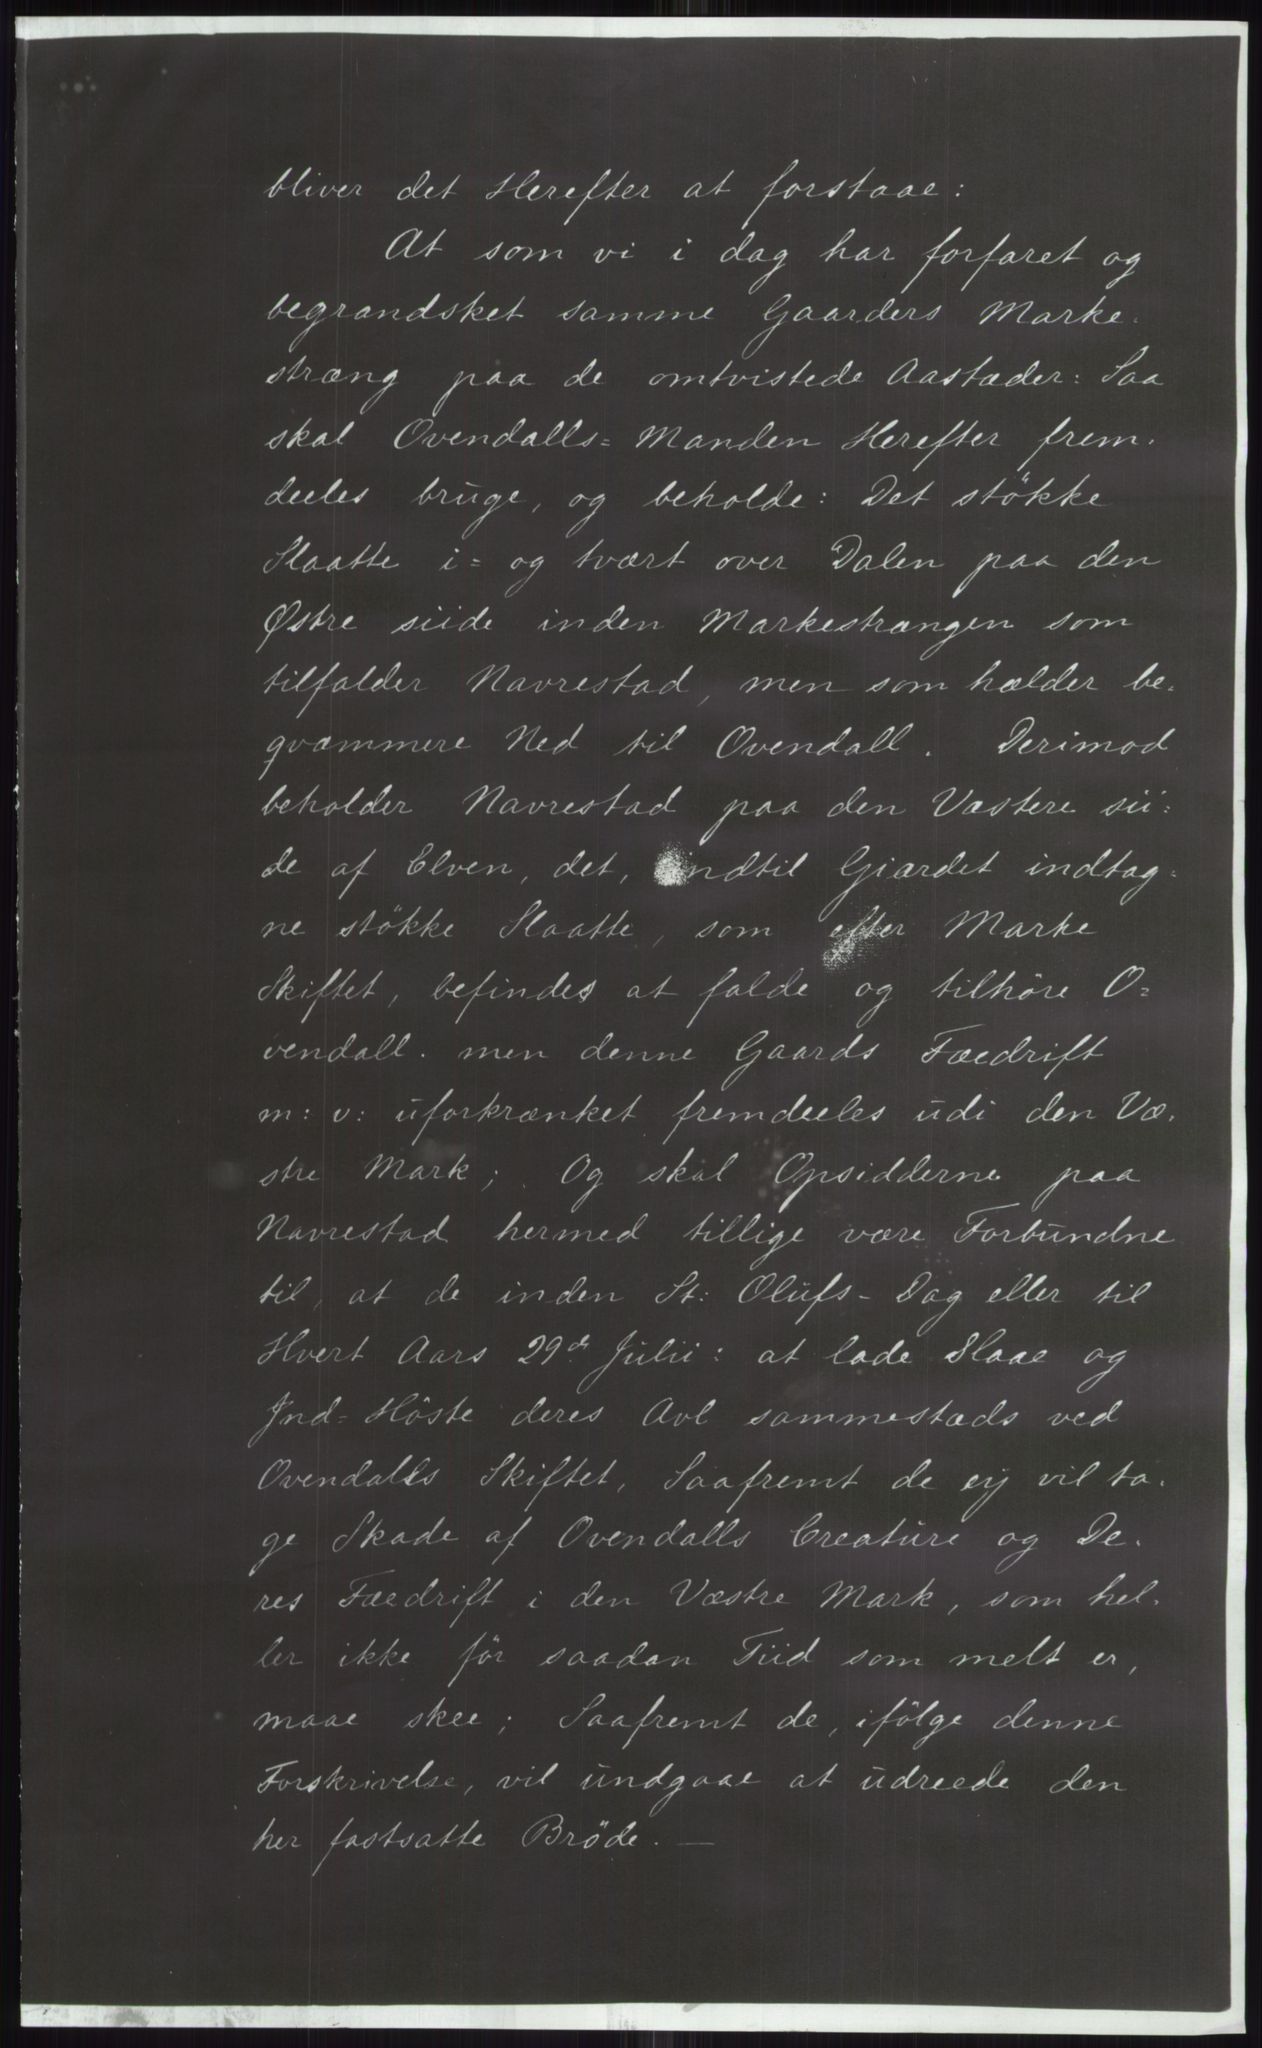 bliver det Herefter at forstaae:
At som vi i dag har forfaret og
begrandsket samme Gaarders Marke-
stræng paa de omtvistede Aastæder: Saa
skal Ovendalls= Manden Herefter frem-
deeles bruge, og beholde: Det støkke
Slaatte i= og tvært over Dalen paa den
Østre siide inden Markestrængen som
tilfalder Navrestad, men som hælder be-
qvæmmere Ned til Ovendall. Derimod
beholder Navrestad paa den Væstere sii-
de af Elven, det, indtil Giærdet indtag-
ne støkke Slaatte, som efter Marke
Skiftet, befindes at falde og tilhøre O=
vendall. men denne Gaards Fæedrift
m: v: uforkrænket fremdeeles udi den Væ-
stre Mark; Og skal Opsidderne paa
Navrestad hermed tillige være Forbundne
til, at de inden St: Olufs- Dag eller til
Hvert Aars 29de Julii: at lade Slaae og
Ind= Høste deres Avl sammestæds ved
Ovendalls Skiftet, Saafremt de eÿ vil ta-
ge Skade af Ovendalls Creature og De-
res Fæedrift i den Væstre Mark, som hel-
ler ikke før saadan Tiid som melt er,
maae skee; Saafremt de, ifølge denne
Forskrivelse, vil undgaae at udreede den
her fastsatte Brøde. —